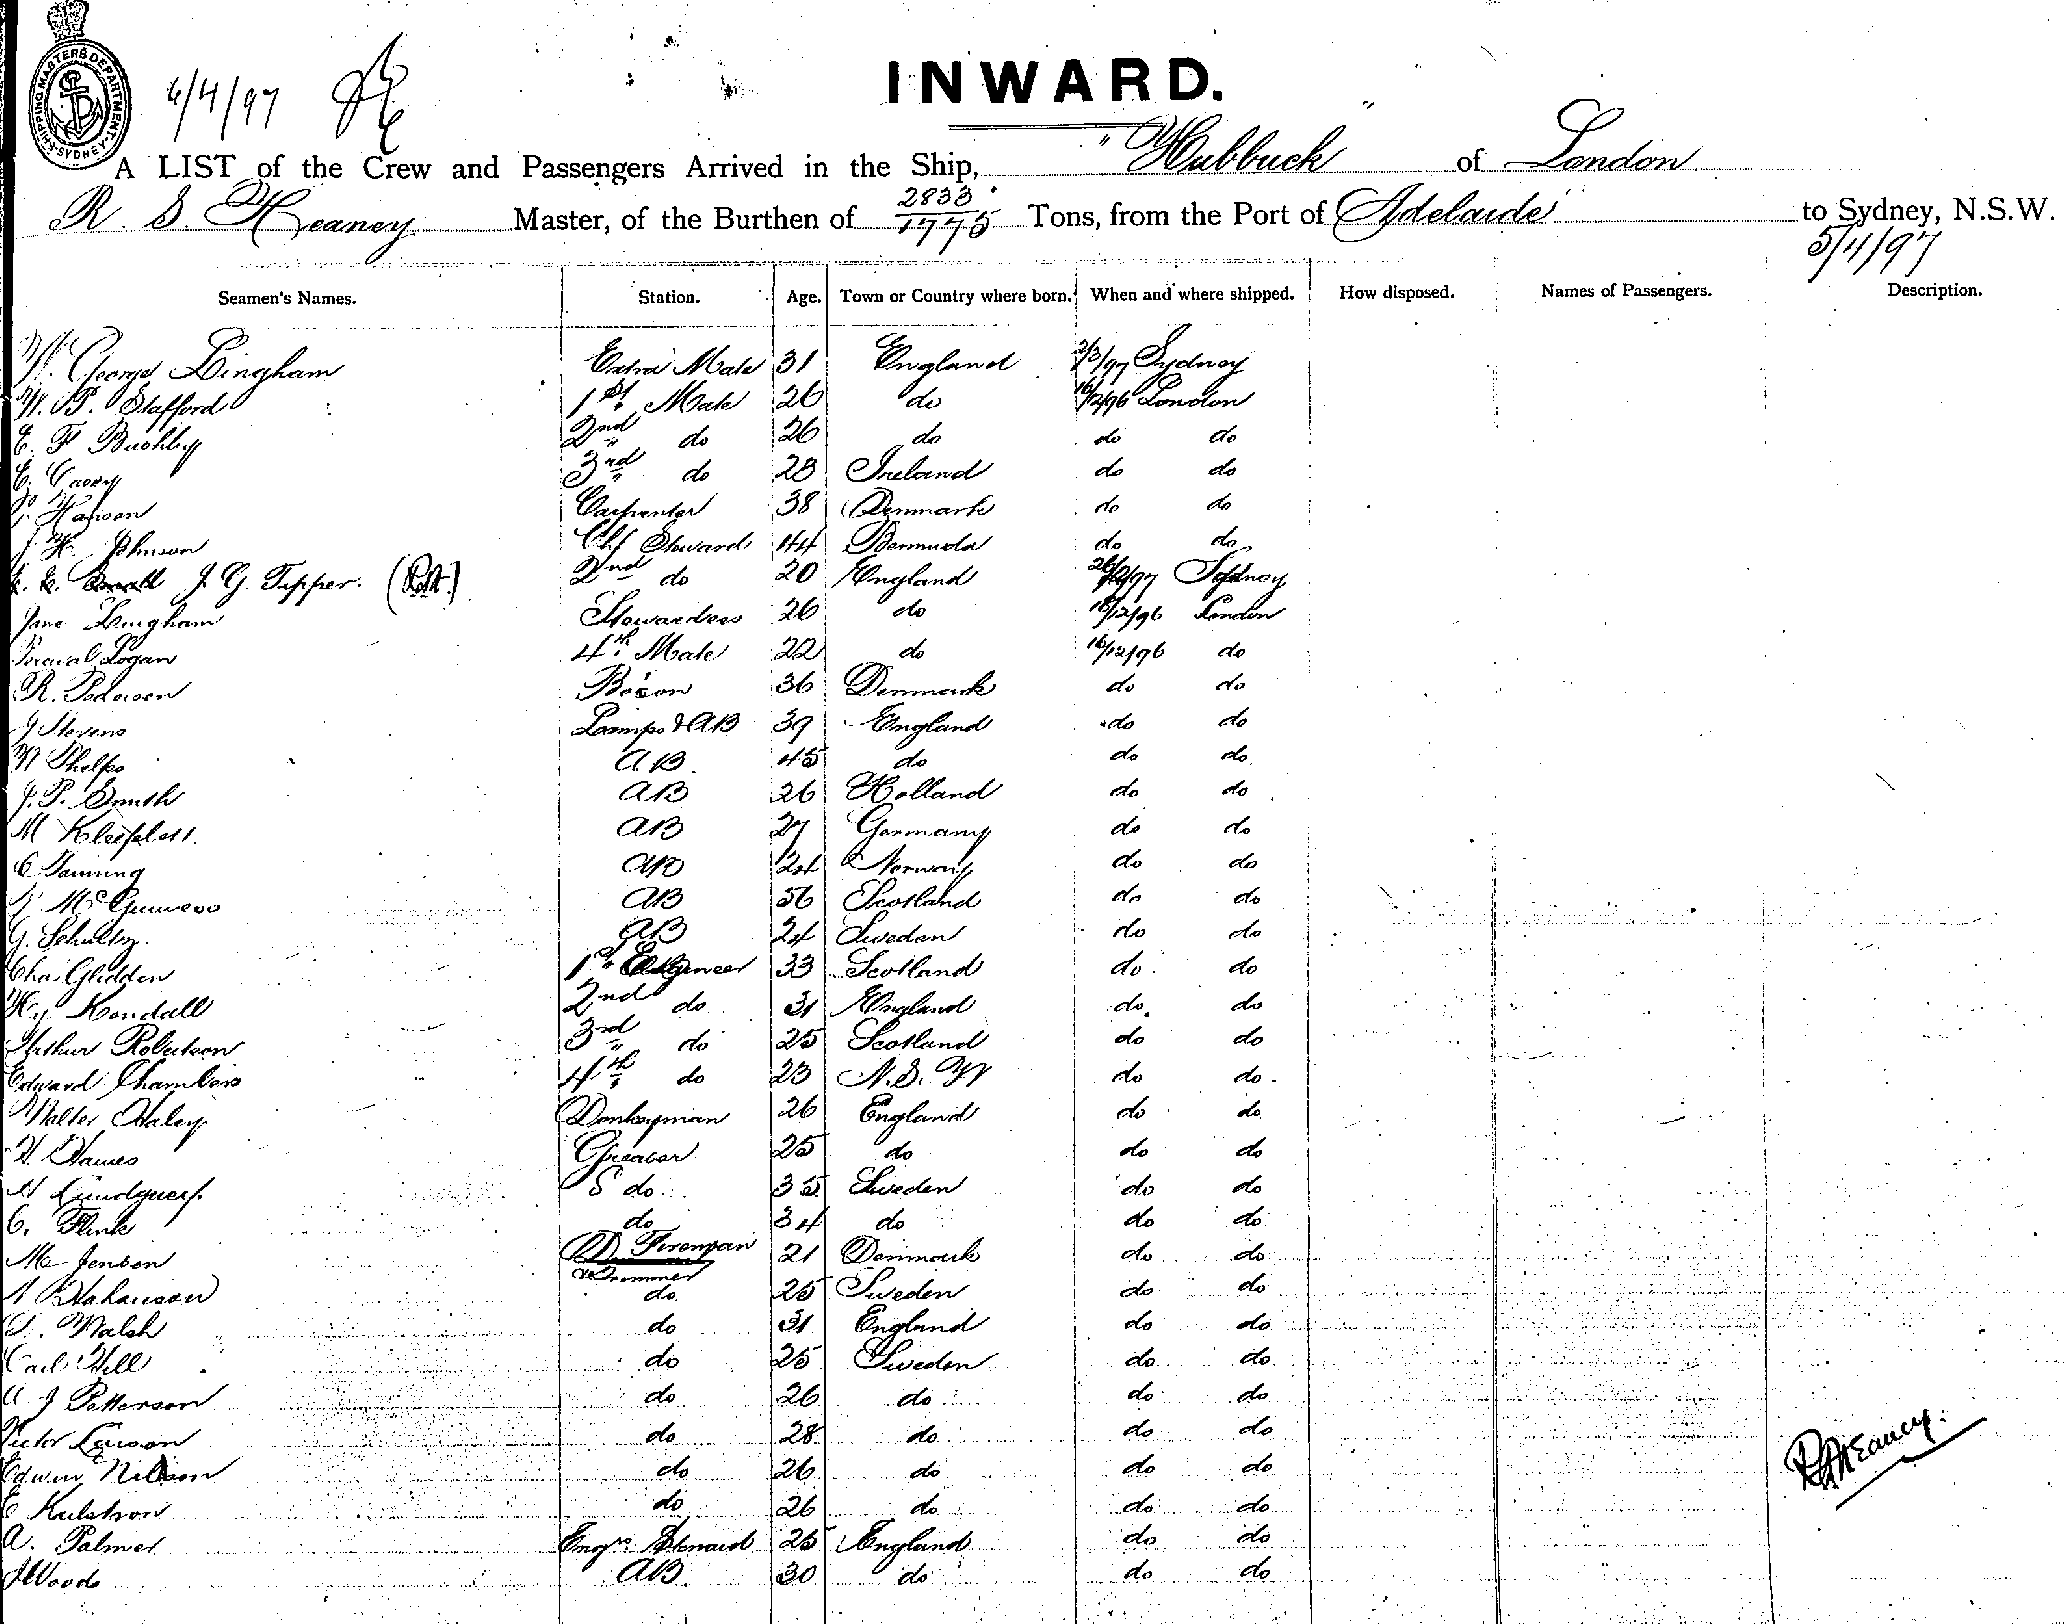 SHIPPING MASTERS DEPARTMENT SYDNEY
6/4/97
INWARD.
A LIST of the Crew and Passengers Arrived in the Ship, "Hubbuck" of London
R. S. Heaney Master, of the Burthen of 2833/1775 Tons, from the Port of Adelaide to Sydney, N.S.W.
5/4/97
Seamen's Names. Station. Age. Town or Country where born. When and where shipped. How disposed. Names of Passengers. Description.
George Bingham Extra Mate 31 England 2/3/97 Sydney
Stafford 1st Mate 26 do 16/12/96 London
E. F Bushby 2nd do 26 do do do
E. Casey 3rd do 28 Ireland do do
Hanson Carpenter 38 Denmark do do
Johnson Chf Steward 44 Bermuda do do
J. G. Tipper. 2nd do 20 England Sydney
Jane Bingham Stewardess 26 do 16/12/96 London
Percival Logan 4th Mate 22 do 16/12/96 do
R. Pedersen Bosson 36 Denmark do do
J Stevens Lamps & AB 39 England do do
W Phelps AB. 45 do do do
J. P. Smith AB 26 Holland do do
M AB 27 Germany do do
AB 24 Norway do do
McGuiness AB 56 Scotland do do
G. Schultz. AB 24 Sweden do do
Chas Glidden 1st Engineer 33 Scotland do do
Hy Kendall 2nd do 31 England do do
Arthur Robertson 3rd do 25 Scotland do do
Edward Chambers 4th do 23 N.S.W do do
Walter Haley Donkeyman 26 England do do
H. Hawes Greaser 25 do do do
do 35 Sweden do do
C. Flink do 34 do do do
M Jenson Fireman & Trimmer 21 Denmark do do
do 25 Sweden do do
Walsh do 31 England do do
Carl Hill do 25 Sweden do do
A J Petterson do 26 do do do
Victor Larson do 28 do do do
Edwin Nilsson do 26 do do do
E Kulstron do 26 do do do
A. Palmer Engrs Steward 25 England do do
J Woods AB. 30 do do do
RSHeaney.